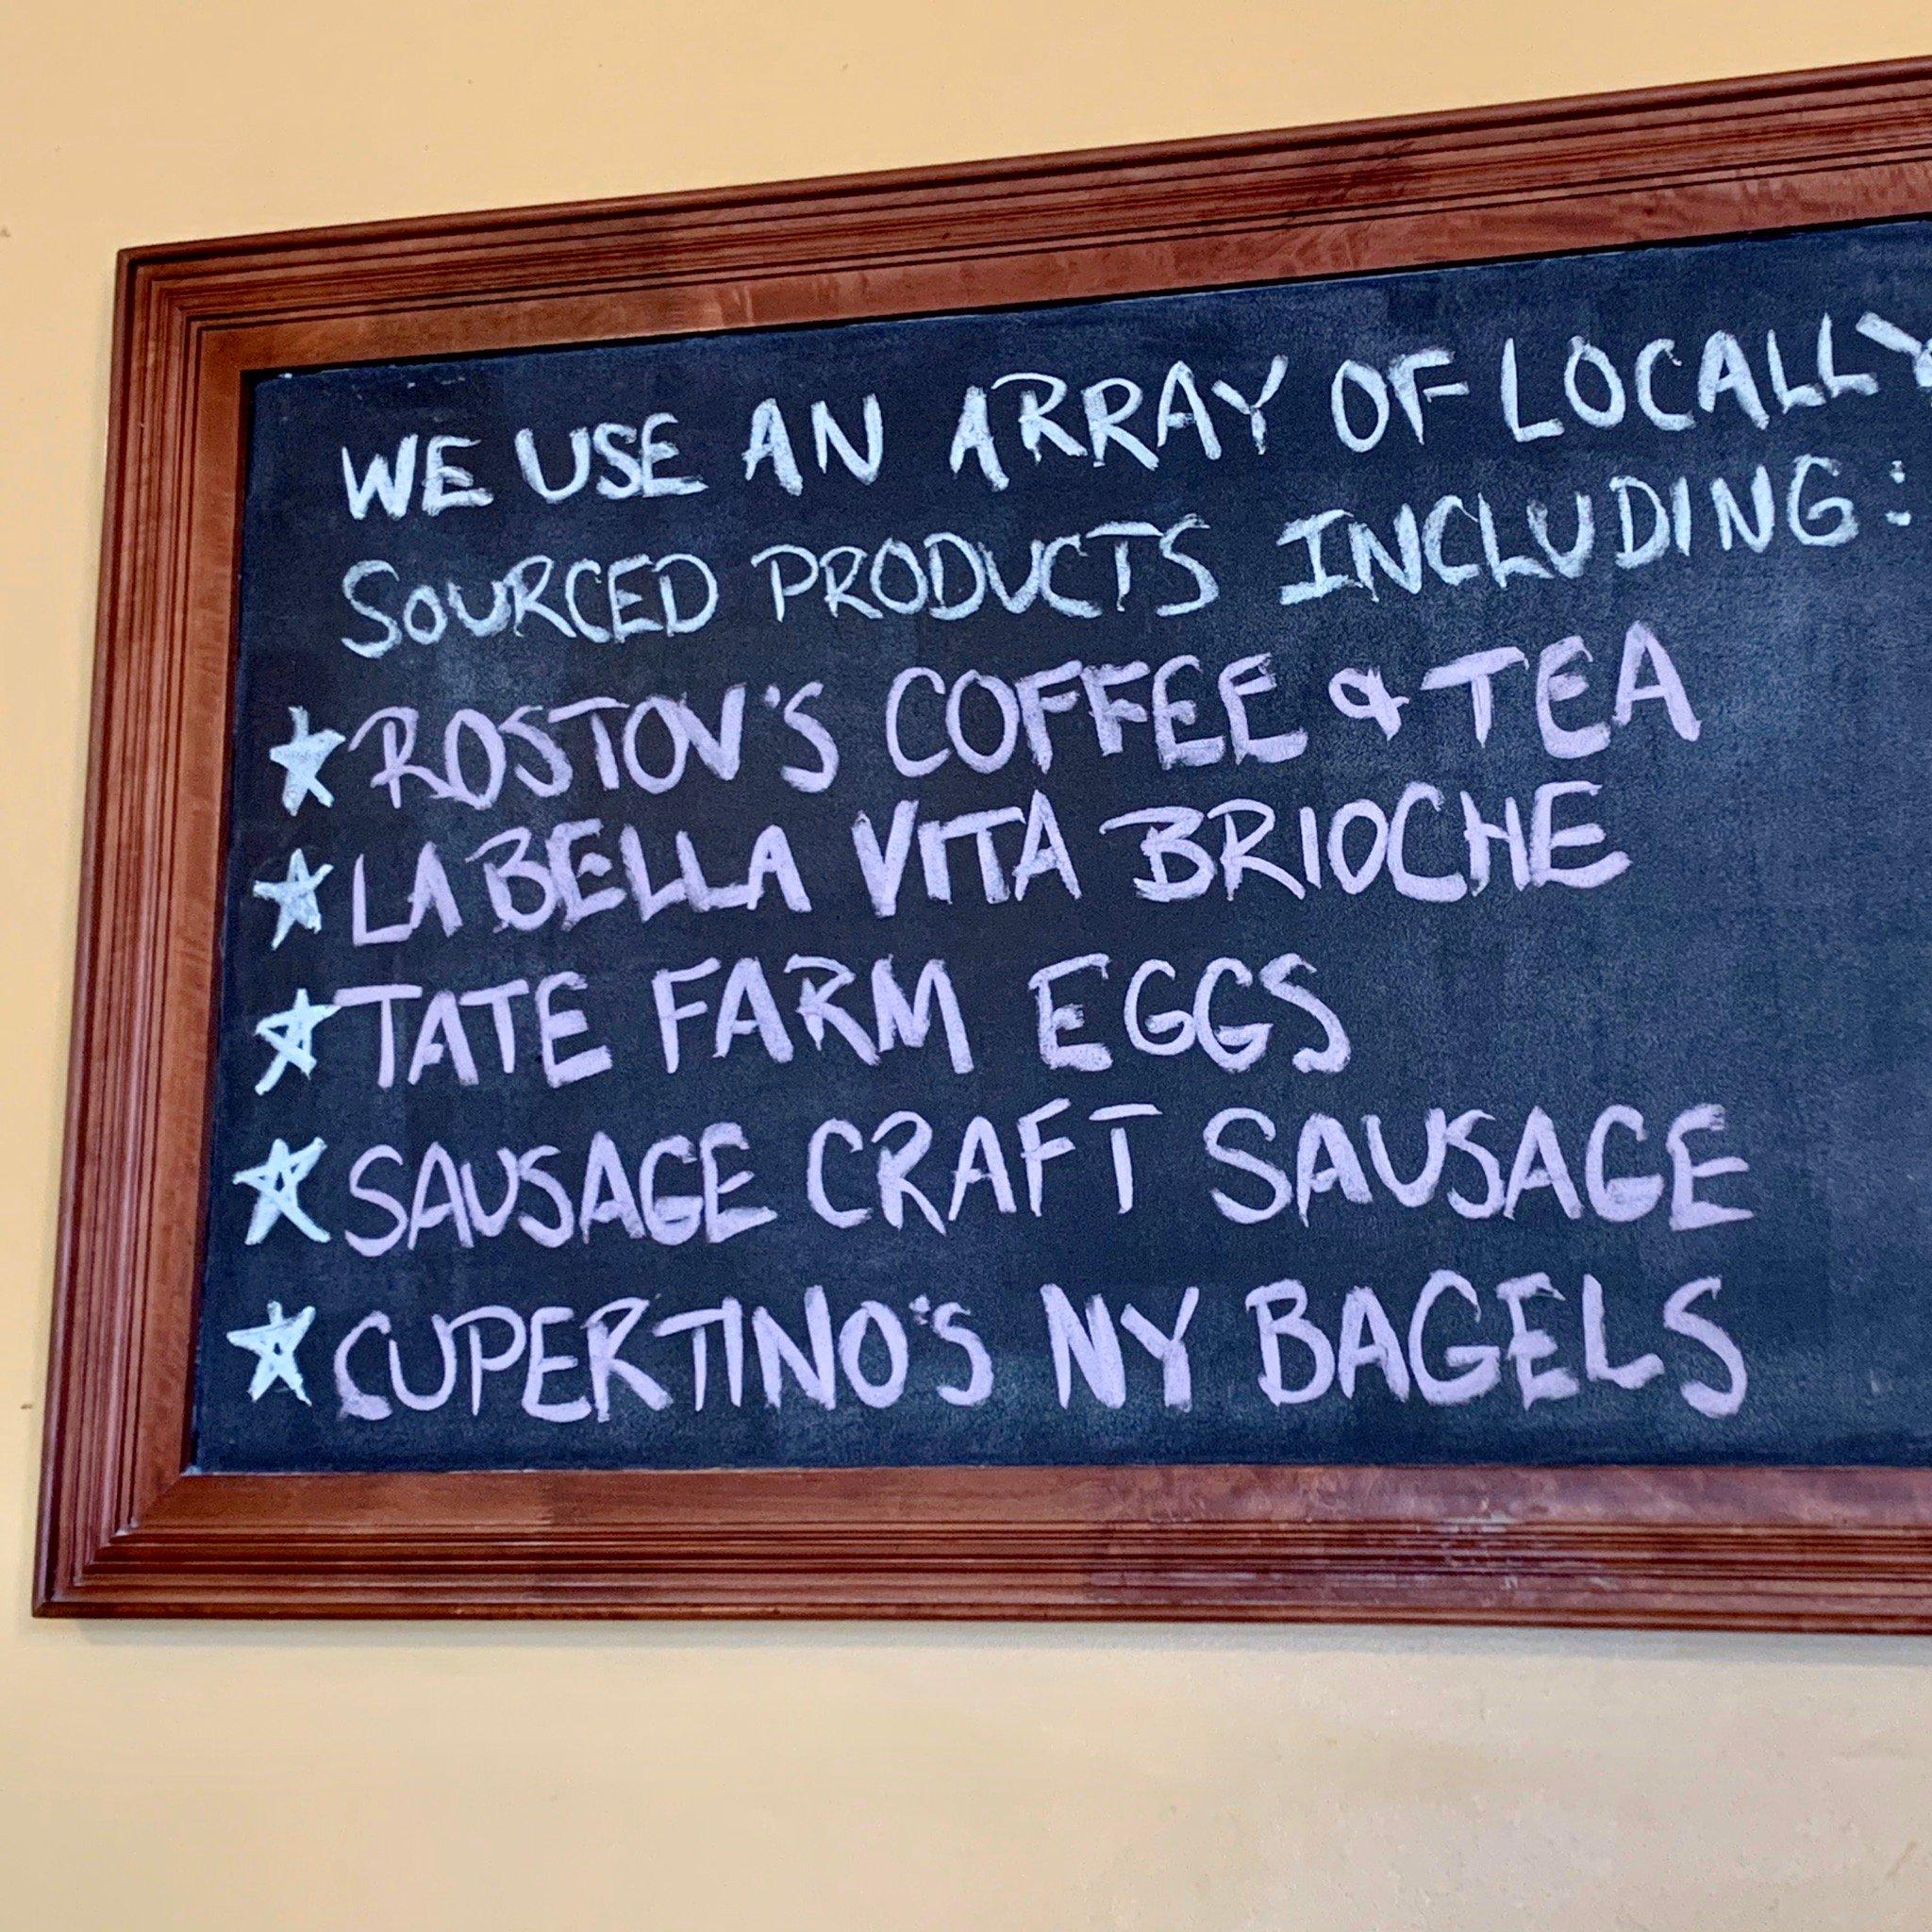 WE USE AN ARRAY OF LOCALLY
SOURCED PRODUCTS INCLUDING:
ROSTOV'S COFFEE & TEA
LA BELLA VITA BRIOCHE
TATE FARM EGGS
SAUSAGE CRAFT SAUSAGE
CUPERTINO'S NY BAGELS